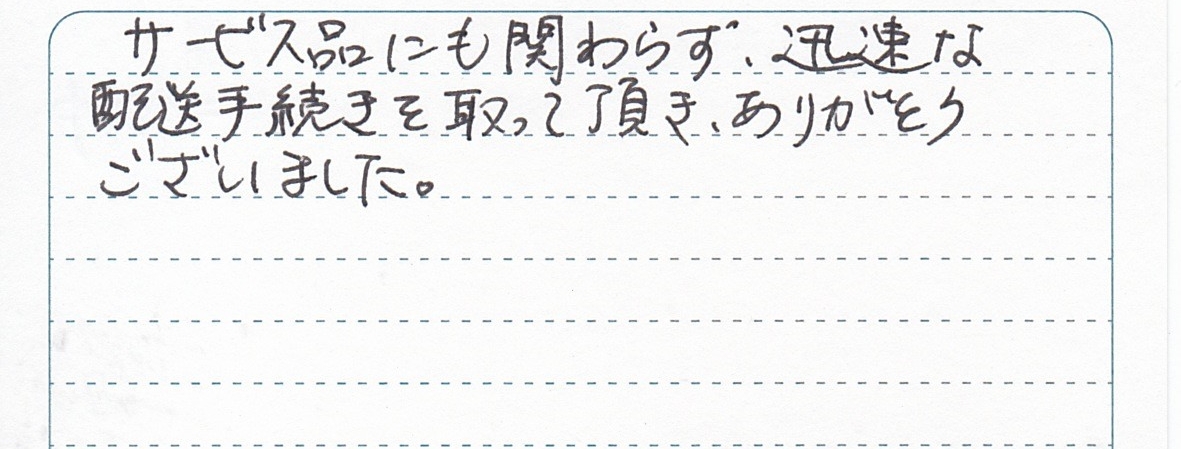 サービス品にも関わらず、迅速な
配送手続きを取って頂き、ありがとう
ございました。